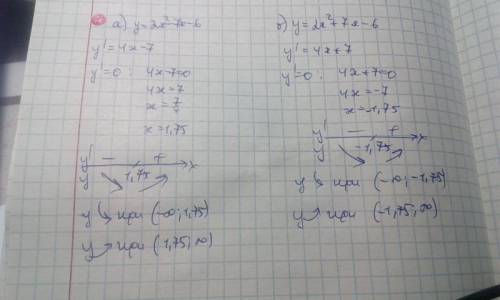 а) y=2x²-7x-6
y'=4x-7
y'=0: 4x-7=0
4x=7
x=7/4
x=1,75
y' - + x
y 1,75
y ↘ при (-∞; 1,75)
y ↗ при (1,75; ∞)
б) y=2x²+7x-6
y'=4x+7
y'=0: 4x+7=0
4x=-7
x=-1,75
y' - + x
y -1,75
y ↘ при (-∞; -1,75)
y ↗ при (-1,75; ∞)